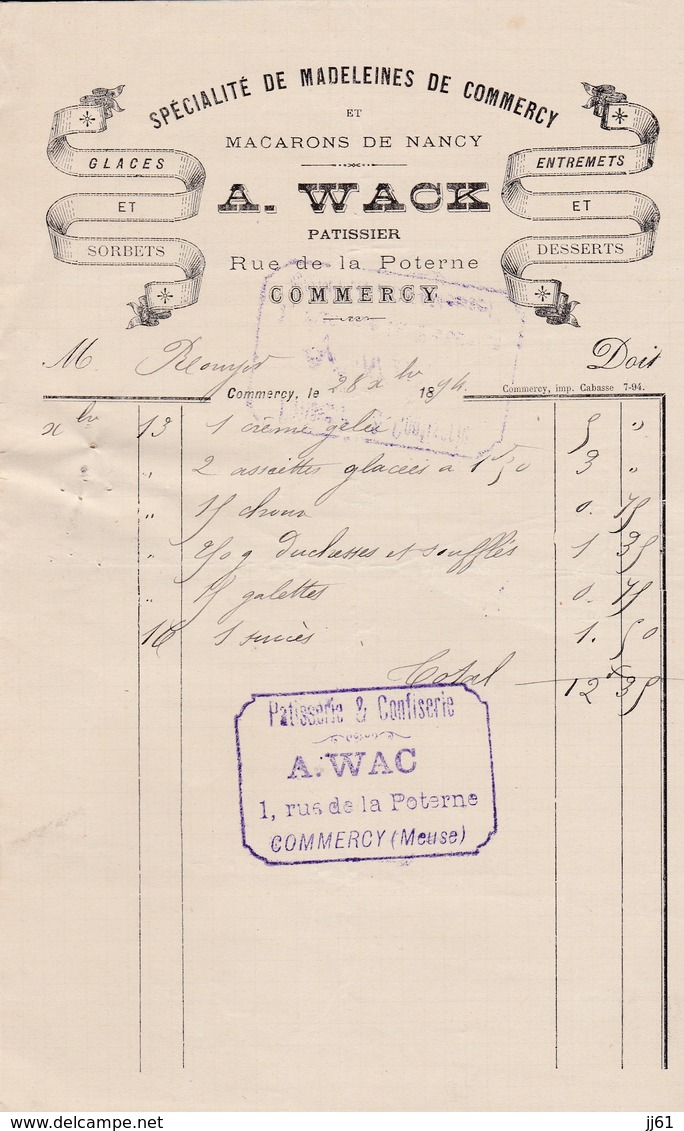 SPÉCIALITÉ DE MADELEINES DE COMMERCY
ET
MACARONS DE NANCY
GLACES
ET
SORBETS
ENTREMETS
ET
DESSERTS
A. WACK
PATISSIER
Rue de la Poterne
COMMERCY
M. Doit
Commercy, le 28 Xbr 1894.
Commercy, imp. Cabasse 7-94.
Xbr 13 1 crème gelée 5 "
" 2 assiettes glacées a 1 50 3 "
" 15 choux 0. 75
" 250 g Duchesses et soufflés 1 35
" 15 galettes 0. 75
16 1 succès 1. 50
Total 12 35
Patisserie & Confiserie
A. WAC
1, rue de la Poterne
COMMERCY (Meuse)
jj61